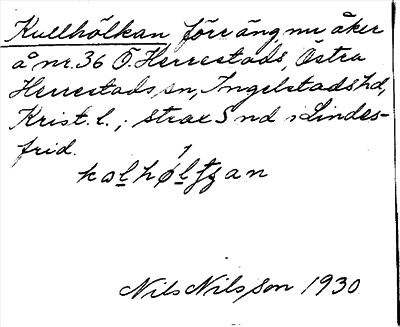 Kullhölkan förr äng, nu åker
å nr. 36 Ö. Herrestads, Östra
Herrestads sn, Ingelstads hd,
Krist. l.; strax S nd i Lindes-
frid.
Nils Nilsson 1930